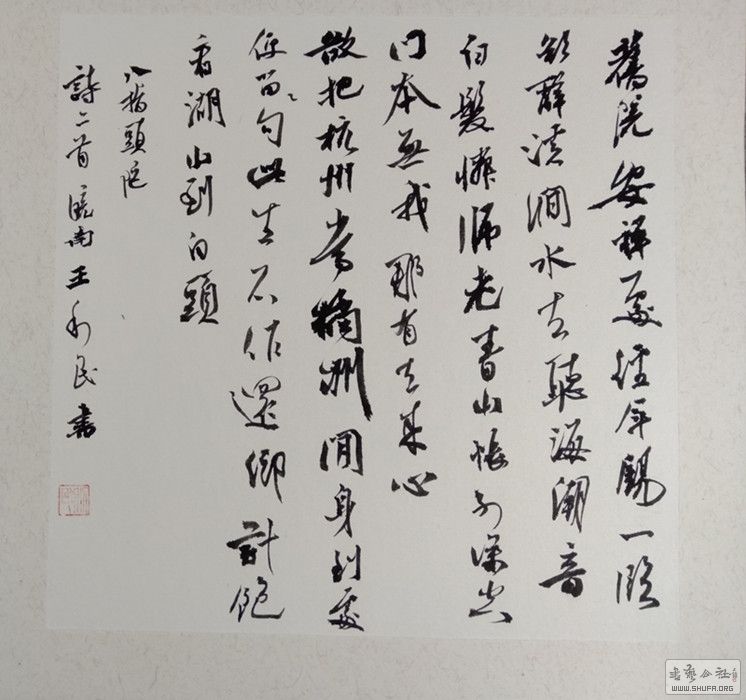 舊院安禪處經年錫一臨
欲辭澗水去聽海潮音
白髮憐師老青山悵別深空
門本無我那有去來心
敢把杭州當橘洲閒身到處
便留句此生不作還鄉計飽
看湖山到白頭
八指頭陀
詩二首曉南王利民書
書藝公社
WWW.SHUFA.ORG